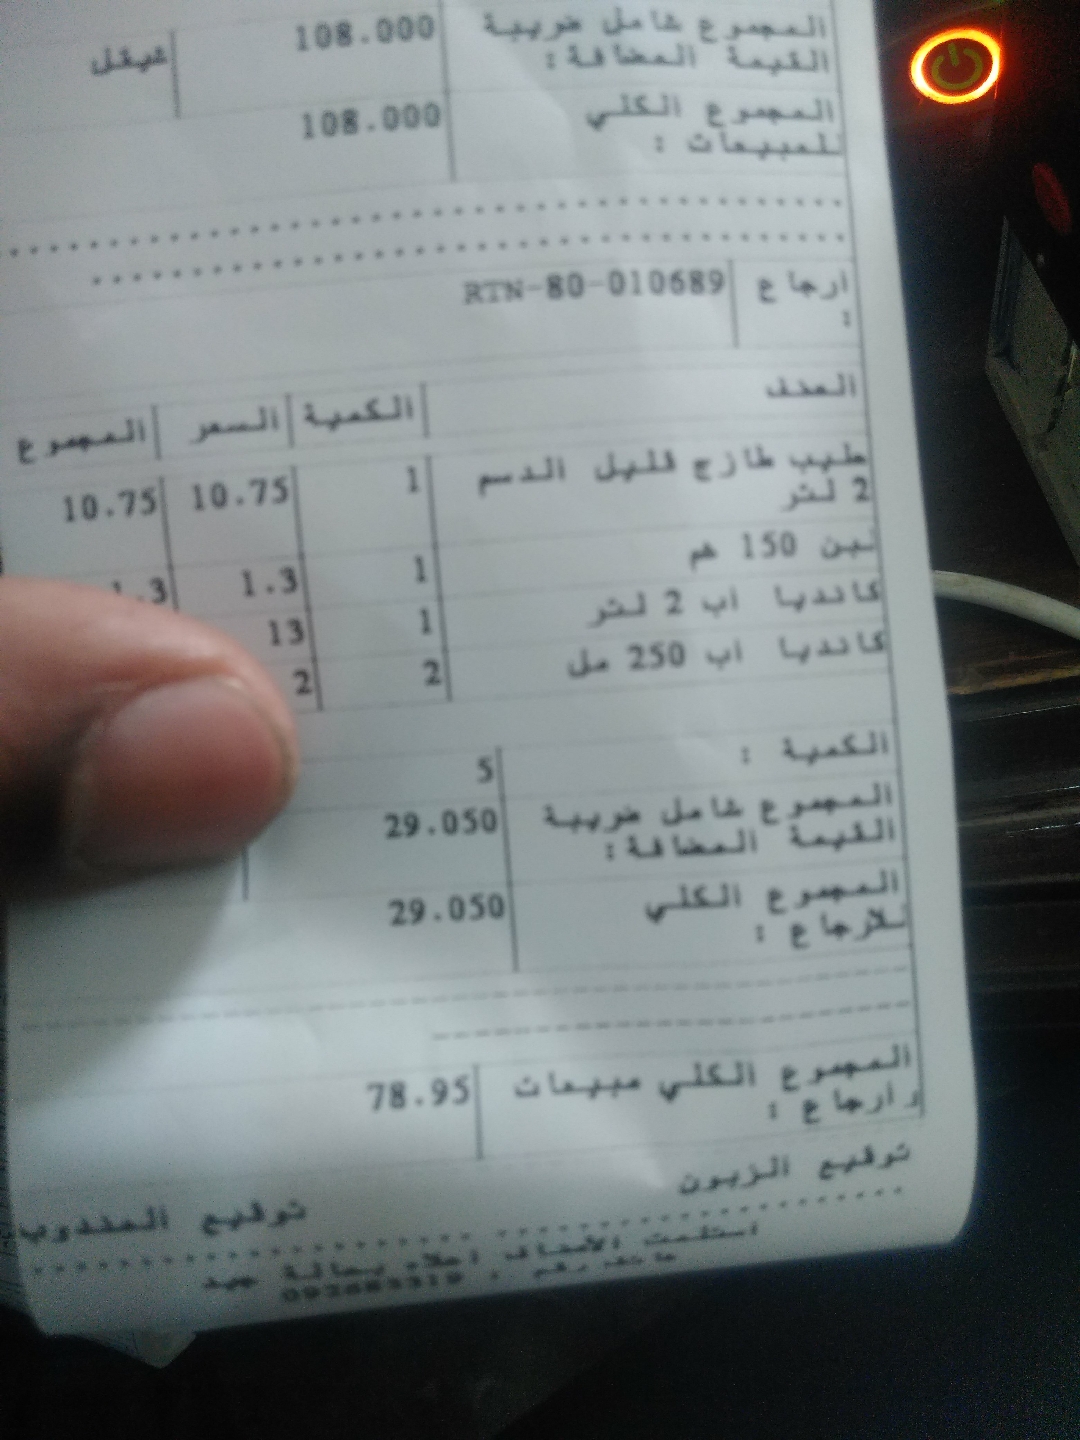 المجموع شامل ضريبة 108.000 شيقل
القيمة المضافة:
المجموع الكلي 108.000
للمبيعات :
ارجاع RTN-80-010689
:
الصنف الكمية السعر المجموع
حليب طازج قليل الدسم 1 10.75 10.75
2 لتر
لبن 150 غم 1 1.3 1.3
كانديا اب 2 لتر 1 13
كانديا اب 250 مل 2 2
الكمية : 5
المجموع شامل ضريبة 29.050
القيمة المضافة:
المجموع الكلي 29.050
للارجاع :
المجموع الكلي مبيعات 78.95
وارجاع :
توقيع الزبون توقيع المندوب
استلمت الأصناف اعلاه بحالة جيد